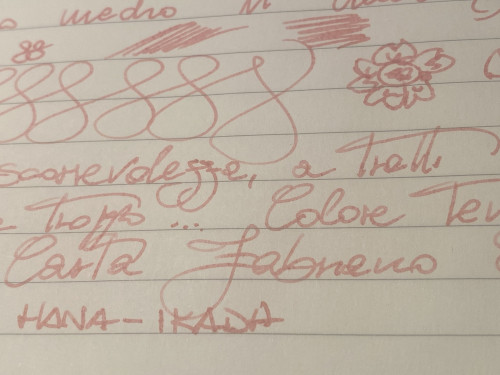 medio M
scorrevolezza, a Tratti
Troppo ... Colore Ten
Carta Fabriano
HANA-IKADA